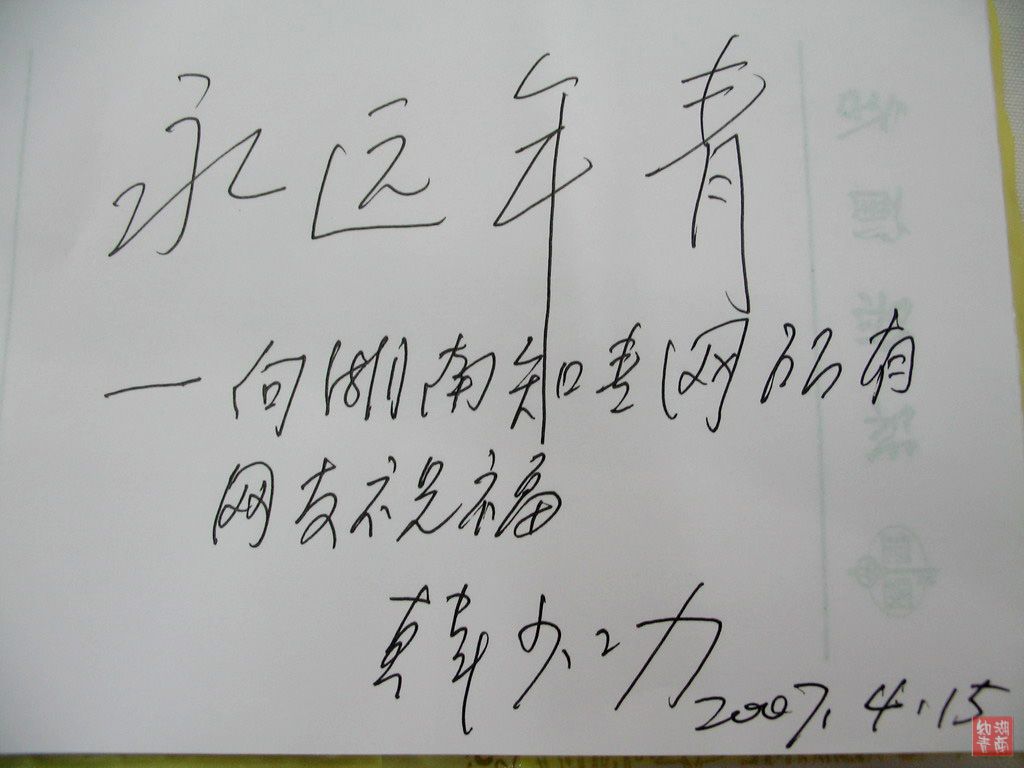 永远年青
—向湖南知青网所有
网友祝福
韩少功
2007.4.15
湖南知青